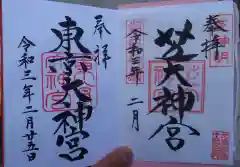 奉拝
芝大神宮
令和三年二月
奉拝
東京大神宮
令和三年二月廿五日